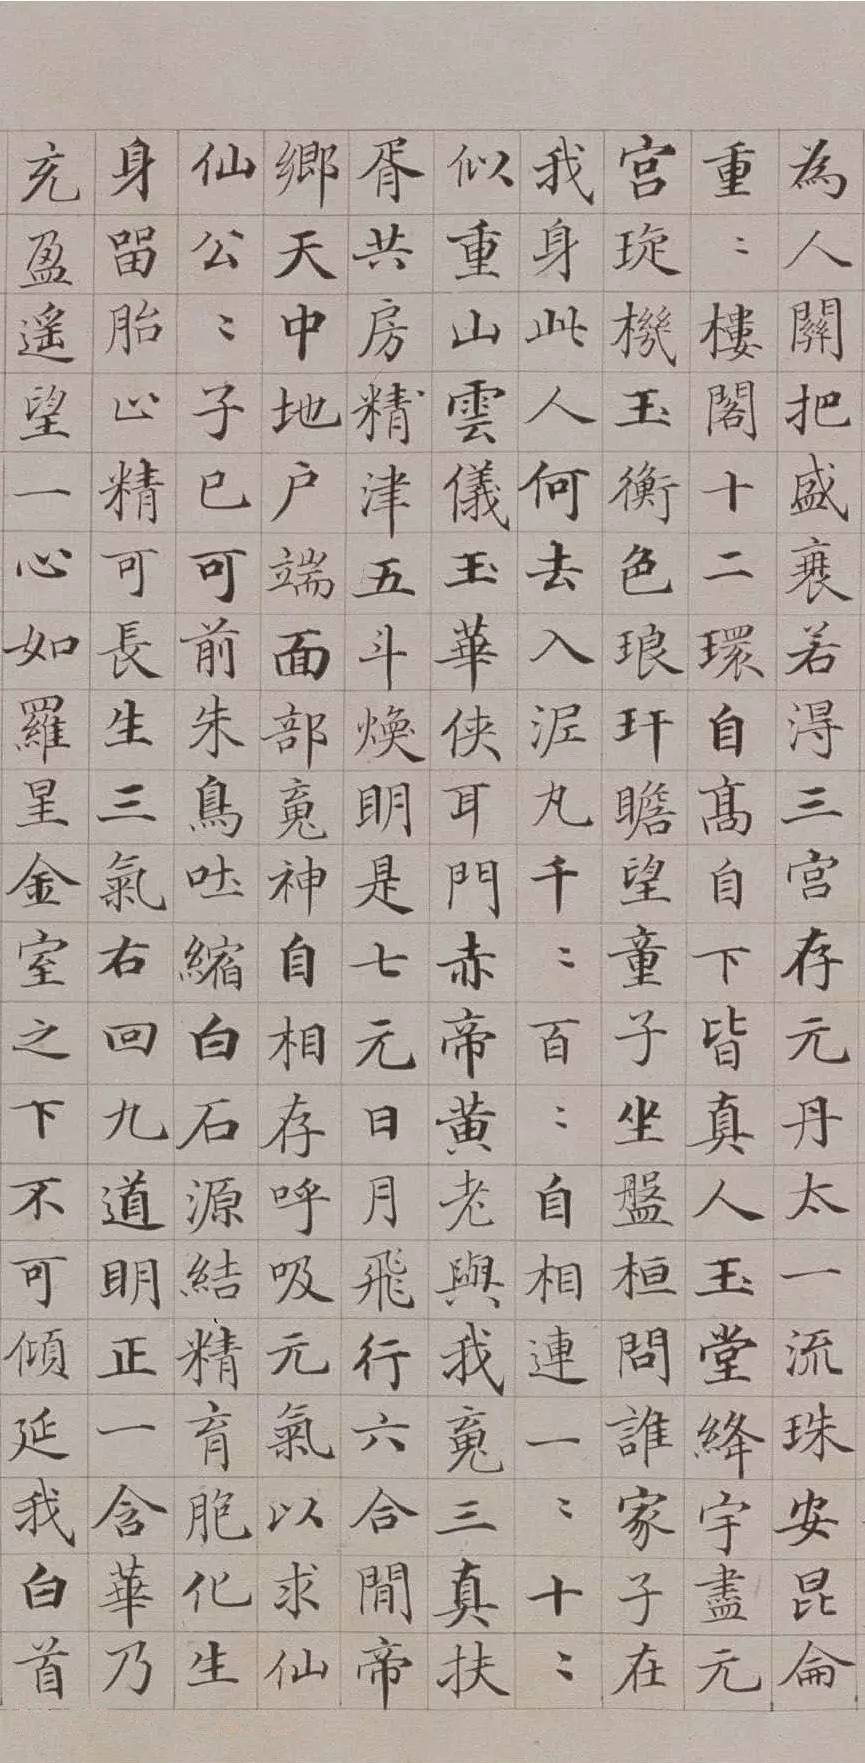 為人關把盛衰若淂三宫存元丹太一流珠安昆侖
重〻樓閣十二環自髙自下皆真人玉堂絳宇盡元
宫琁機玉衡色琅玕瞻望童子坐盤桓問誰家子在
我身此人何去入泥丸千〻百〻自相連一〻十〻
似重山雲儀玉華侠耳門赤帝黄老與我䰟三真扶
胥共房精津五斗煥明是七元日月飛行六合閒帝
鄉天中地户端面部䰟神自相存呼吸元氣以求仙
仙公〻子已可前朱鳥吐縮白石源結精育胞化生
身留胎止精可長生三氣右回九道明正一含華乃
充盈遥望一心如羅星金室之下不可傾延我白首